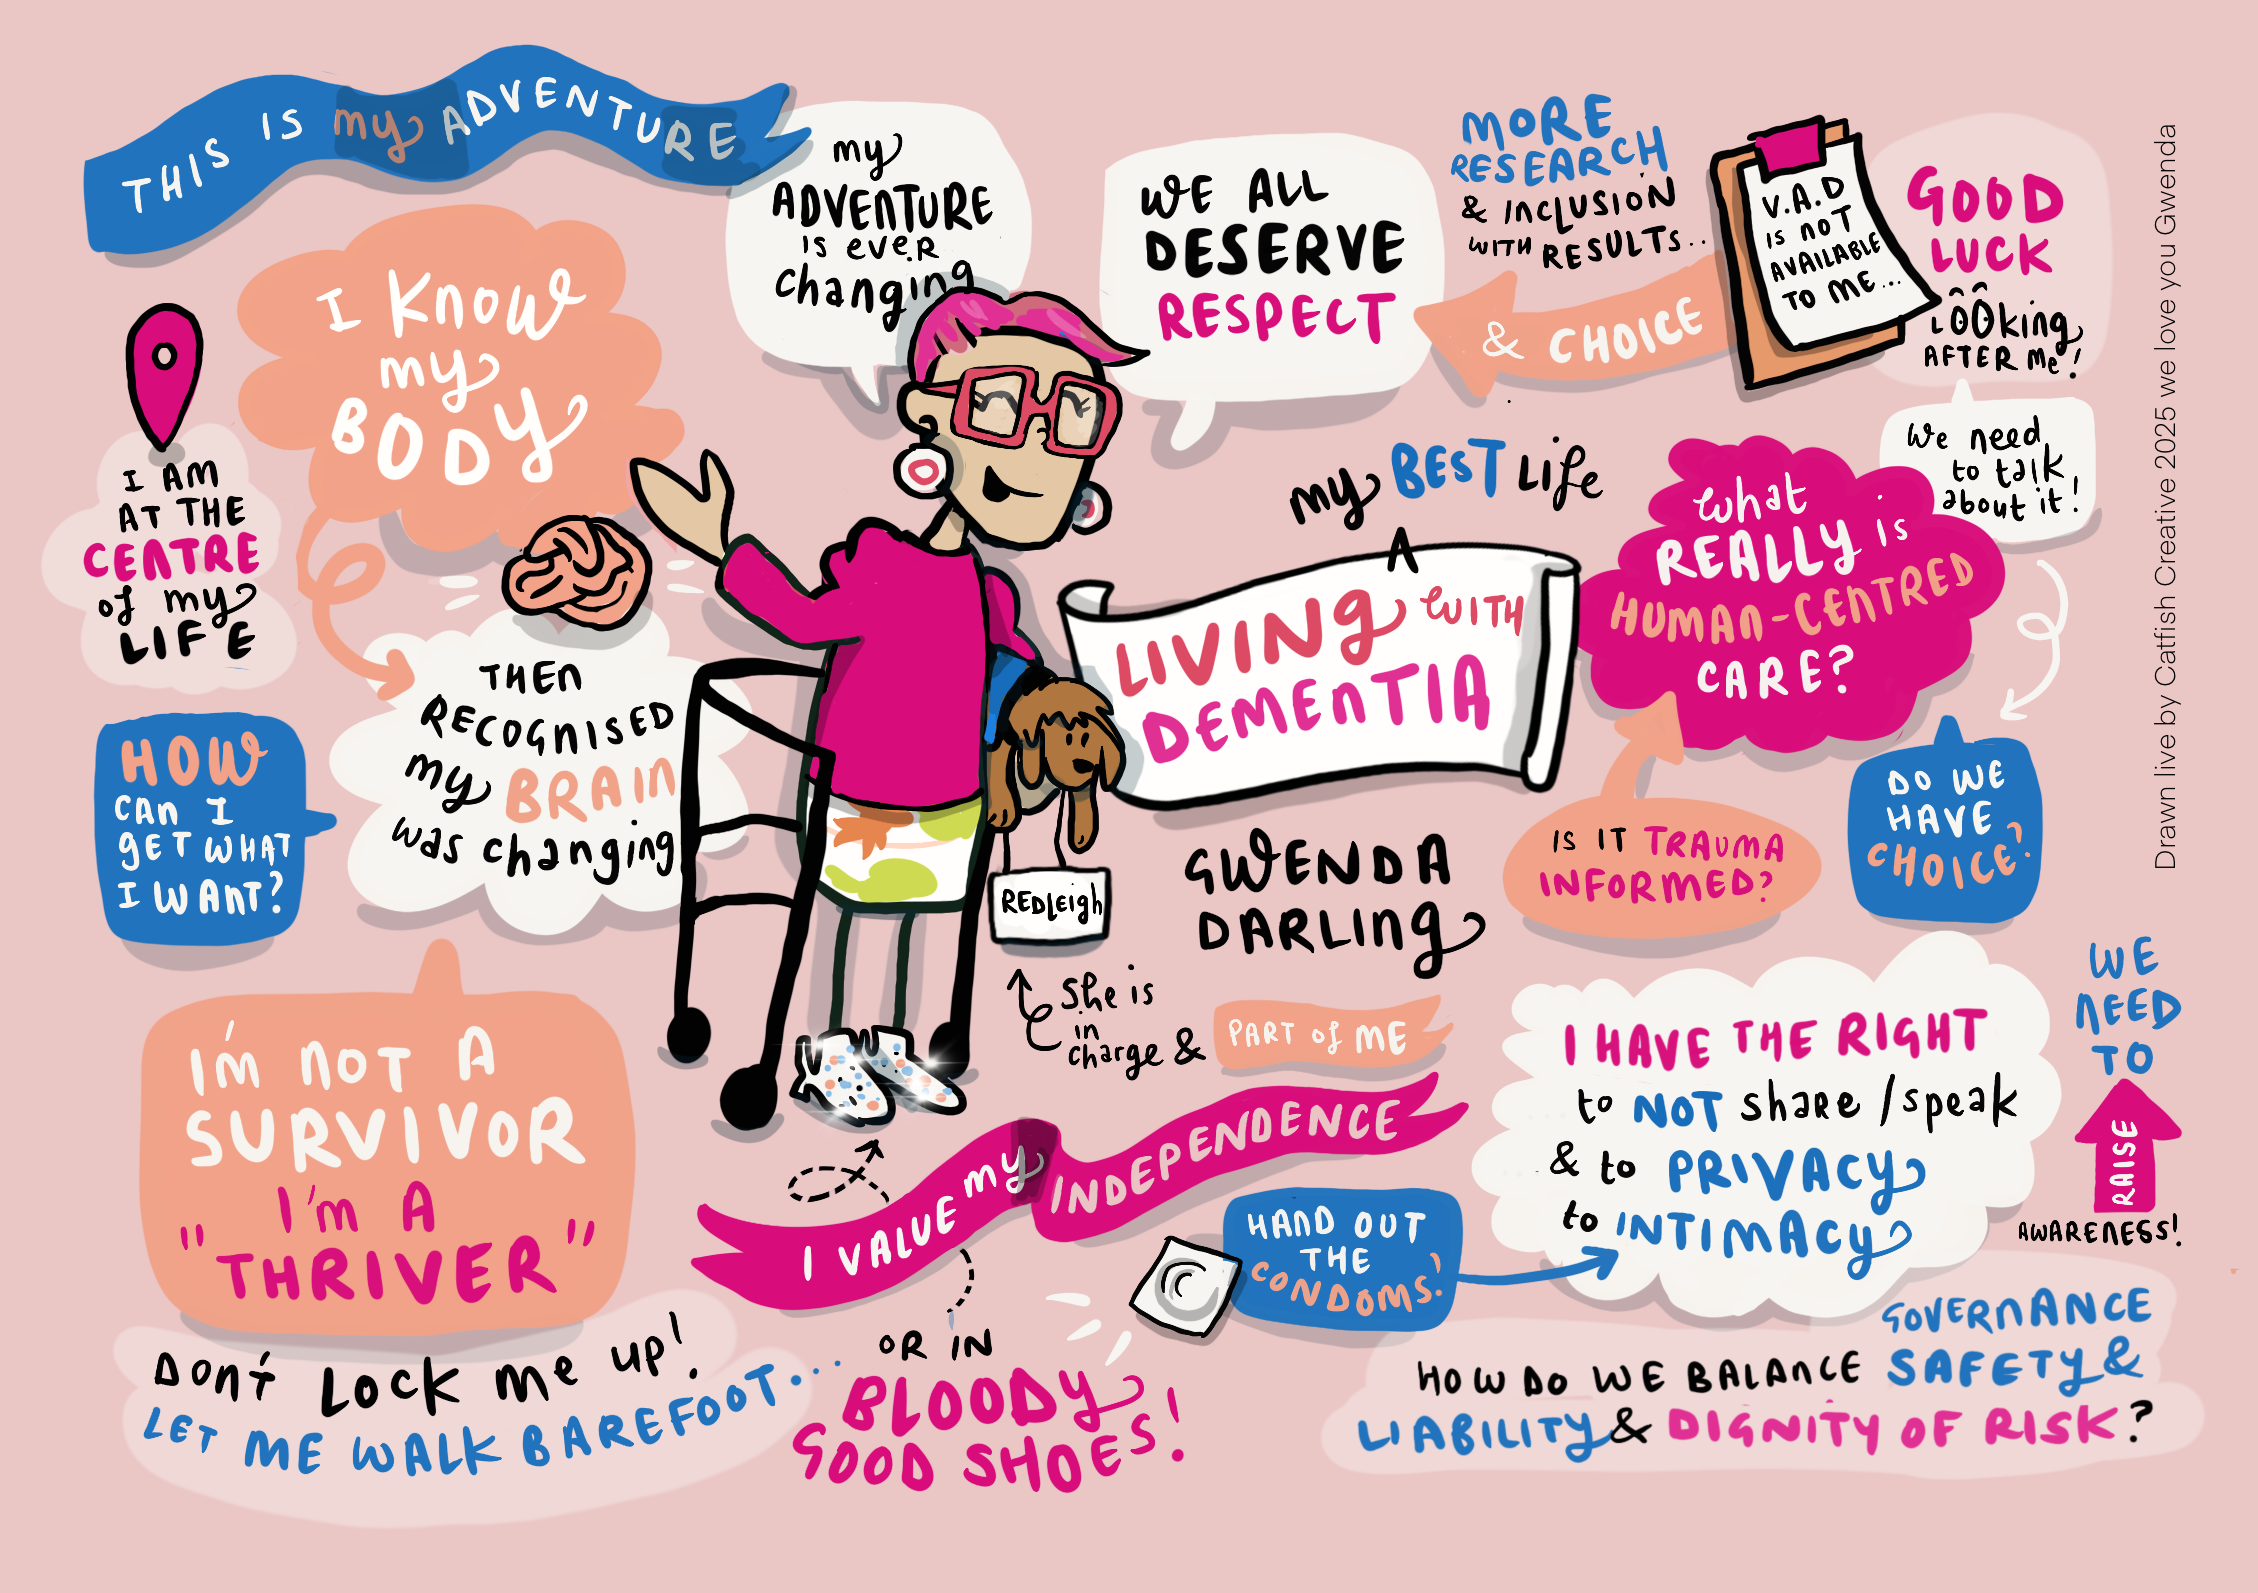 THIS IS my ADVENTURE
my
ADVENTURE
IS eveR
changing
WE ALL
DESERVE
RESPECT
MORE
RESEARCH
& INCLUSION
WITH RESULTS..
& CHOICE
V.A.D
IS NOT
AVAILABLE
TO ME...
GOOD
LUCK
LOOking
AFTER Me!
We need
to talk
about it!
I KNOW
my
BODY
I AM
AT THE
CENTRE
of my
LIFE
THEN
RECOGNISED
my BRAIN
was changing
HOW
CAN I
gET WHAT
I WANT?
my BEST Life
A
LIVINg WITH
DEMENTIA
what
REALLY is
HUMAN-CENTRED
CARE?
IS IT TRAUMA
INFORMED?
DO WE
HAVE
CHOICE?
GWENDA
DARLINg
REDLeigh
She is
in
charge &
PART of ME
I'm NOT A
SURVIVOR
I'm A
"THRIVER"
I VALUE my INDEPENDENCE
HAND OUT
THE
CONDOMS!
I HAVE THE RIGHT
to NOT shaRe / speak
& to PRIVACy
to INTIMACy
WE
NEED
TO
RAISE
AWARENESS!
DON'T LOCK me up!
LET ME WALK BAREFOOT...
OR IN
BLOODy
GOOD SHOES!
HOW DO WE BALANCE
GOVERNANCE
SAFETy &
LIABILITy & DIGNITY OF RISK?
Drawn live by Catfish Creative 2025 we love you Gwenda